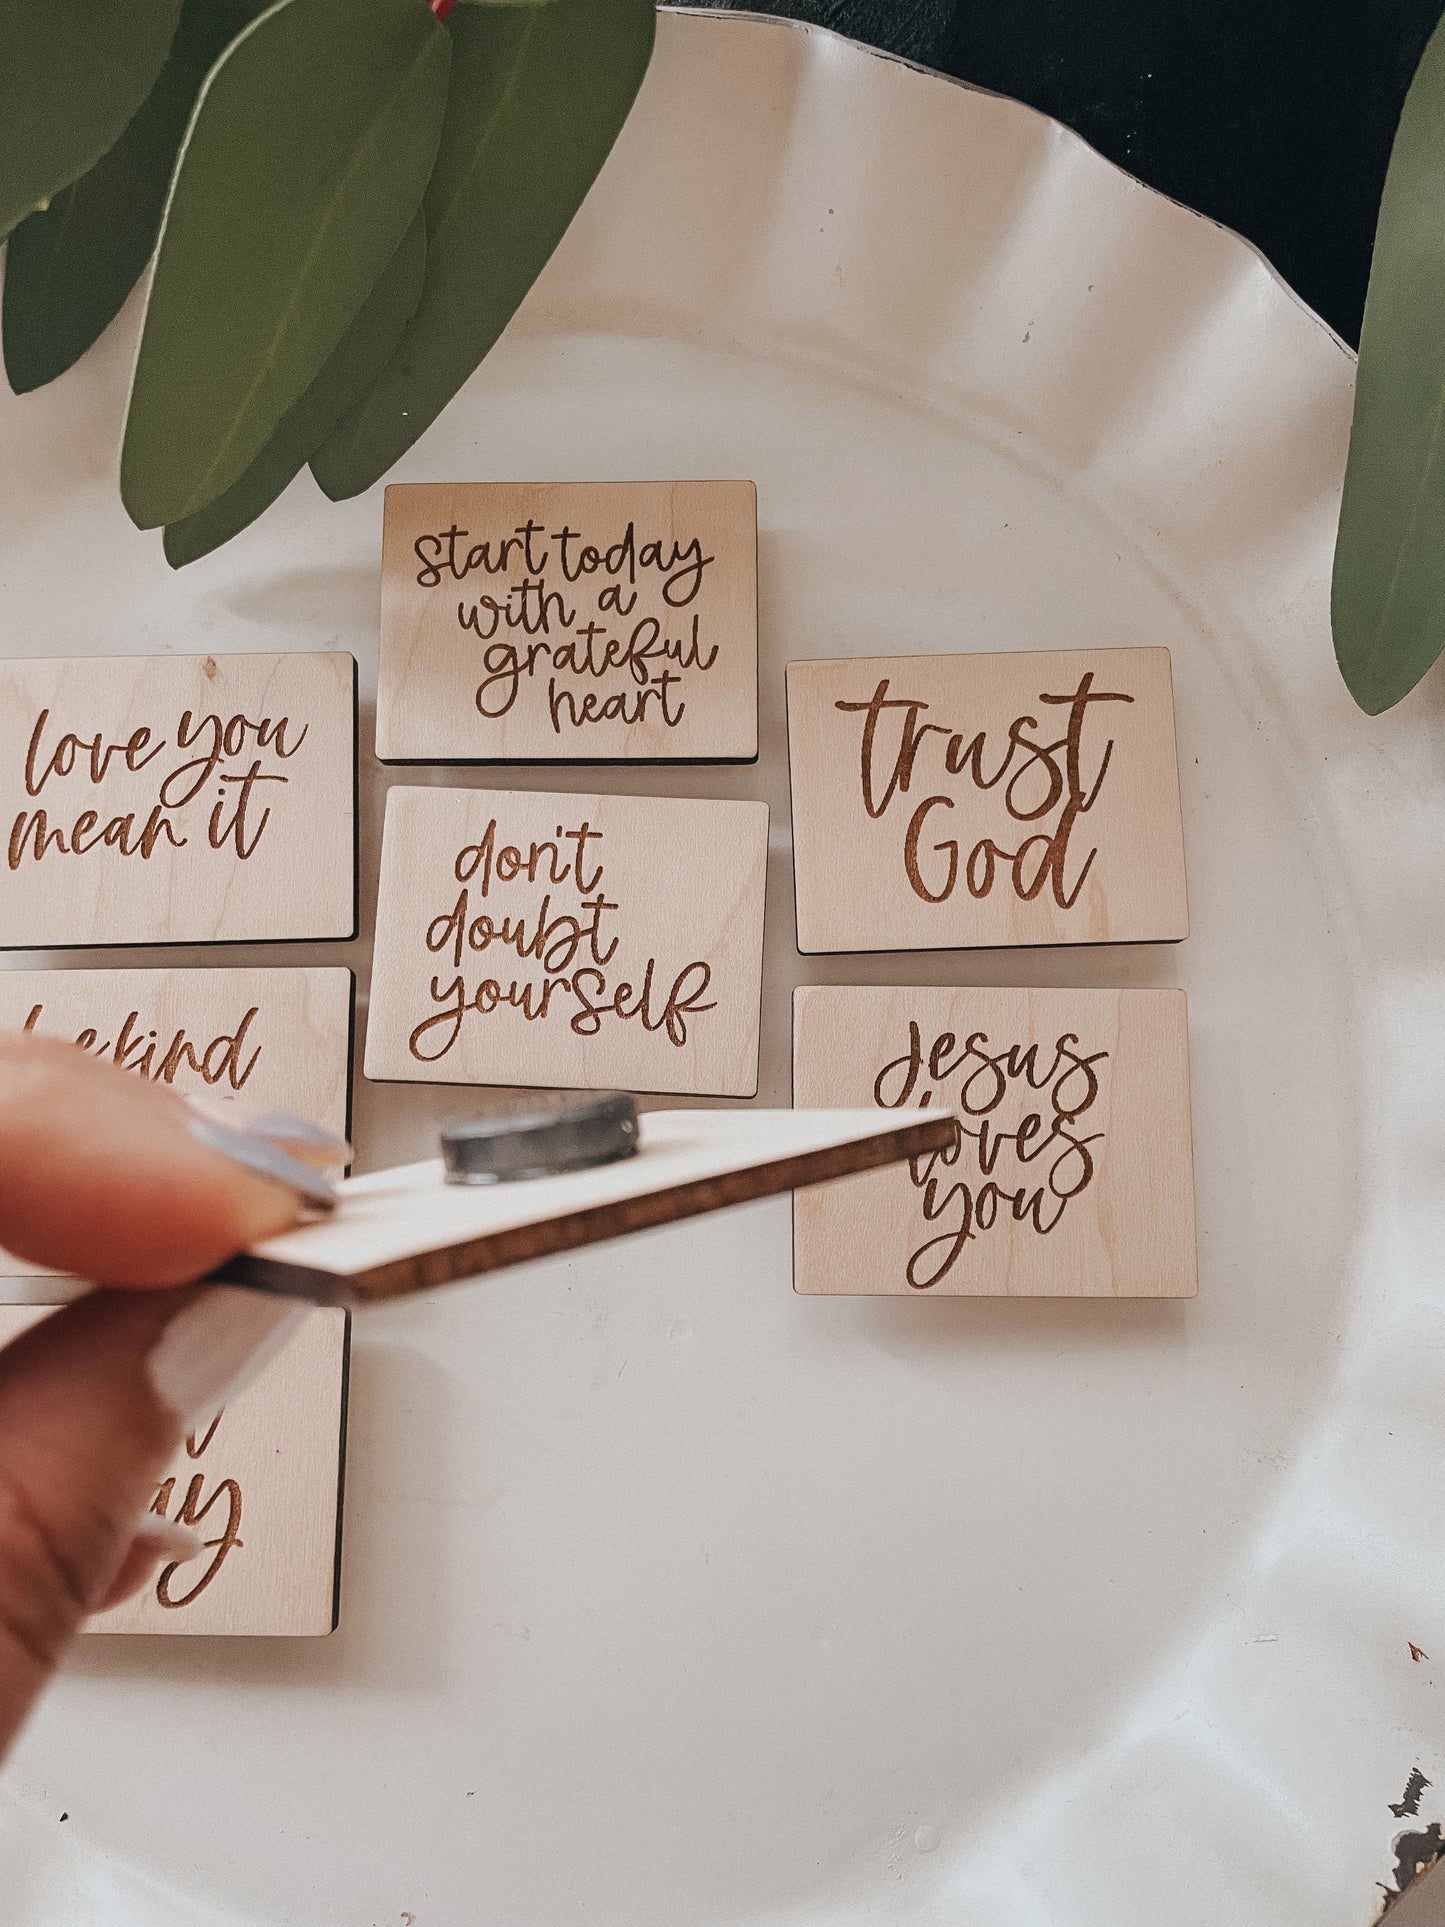 start today
with a
grateful
heart
love you
mean it
trust
God
don't
doubt
yourself
be kind
Jesus
loves
you